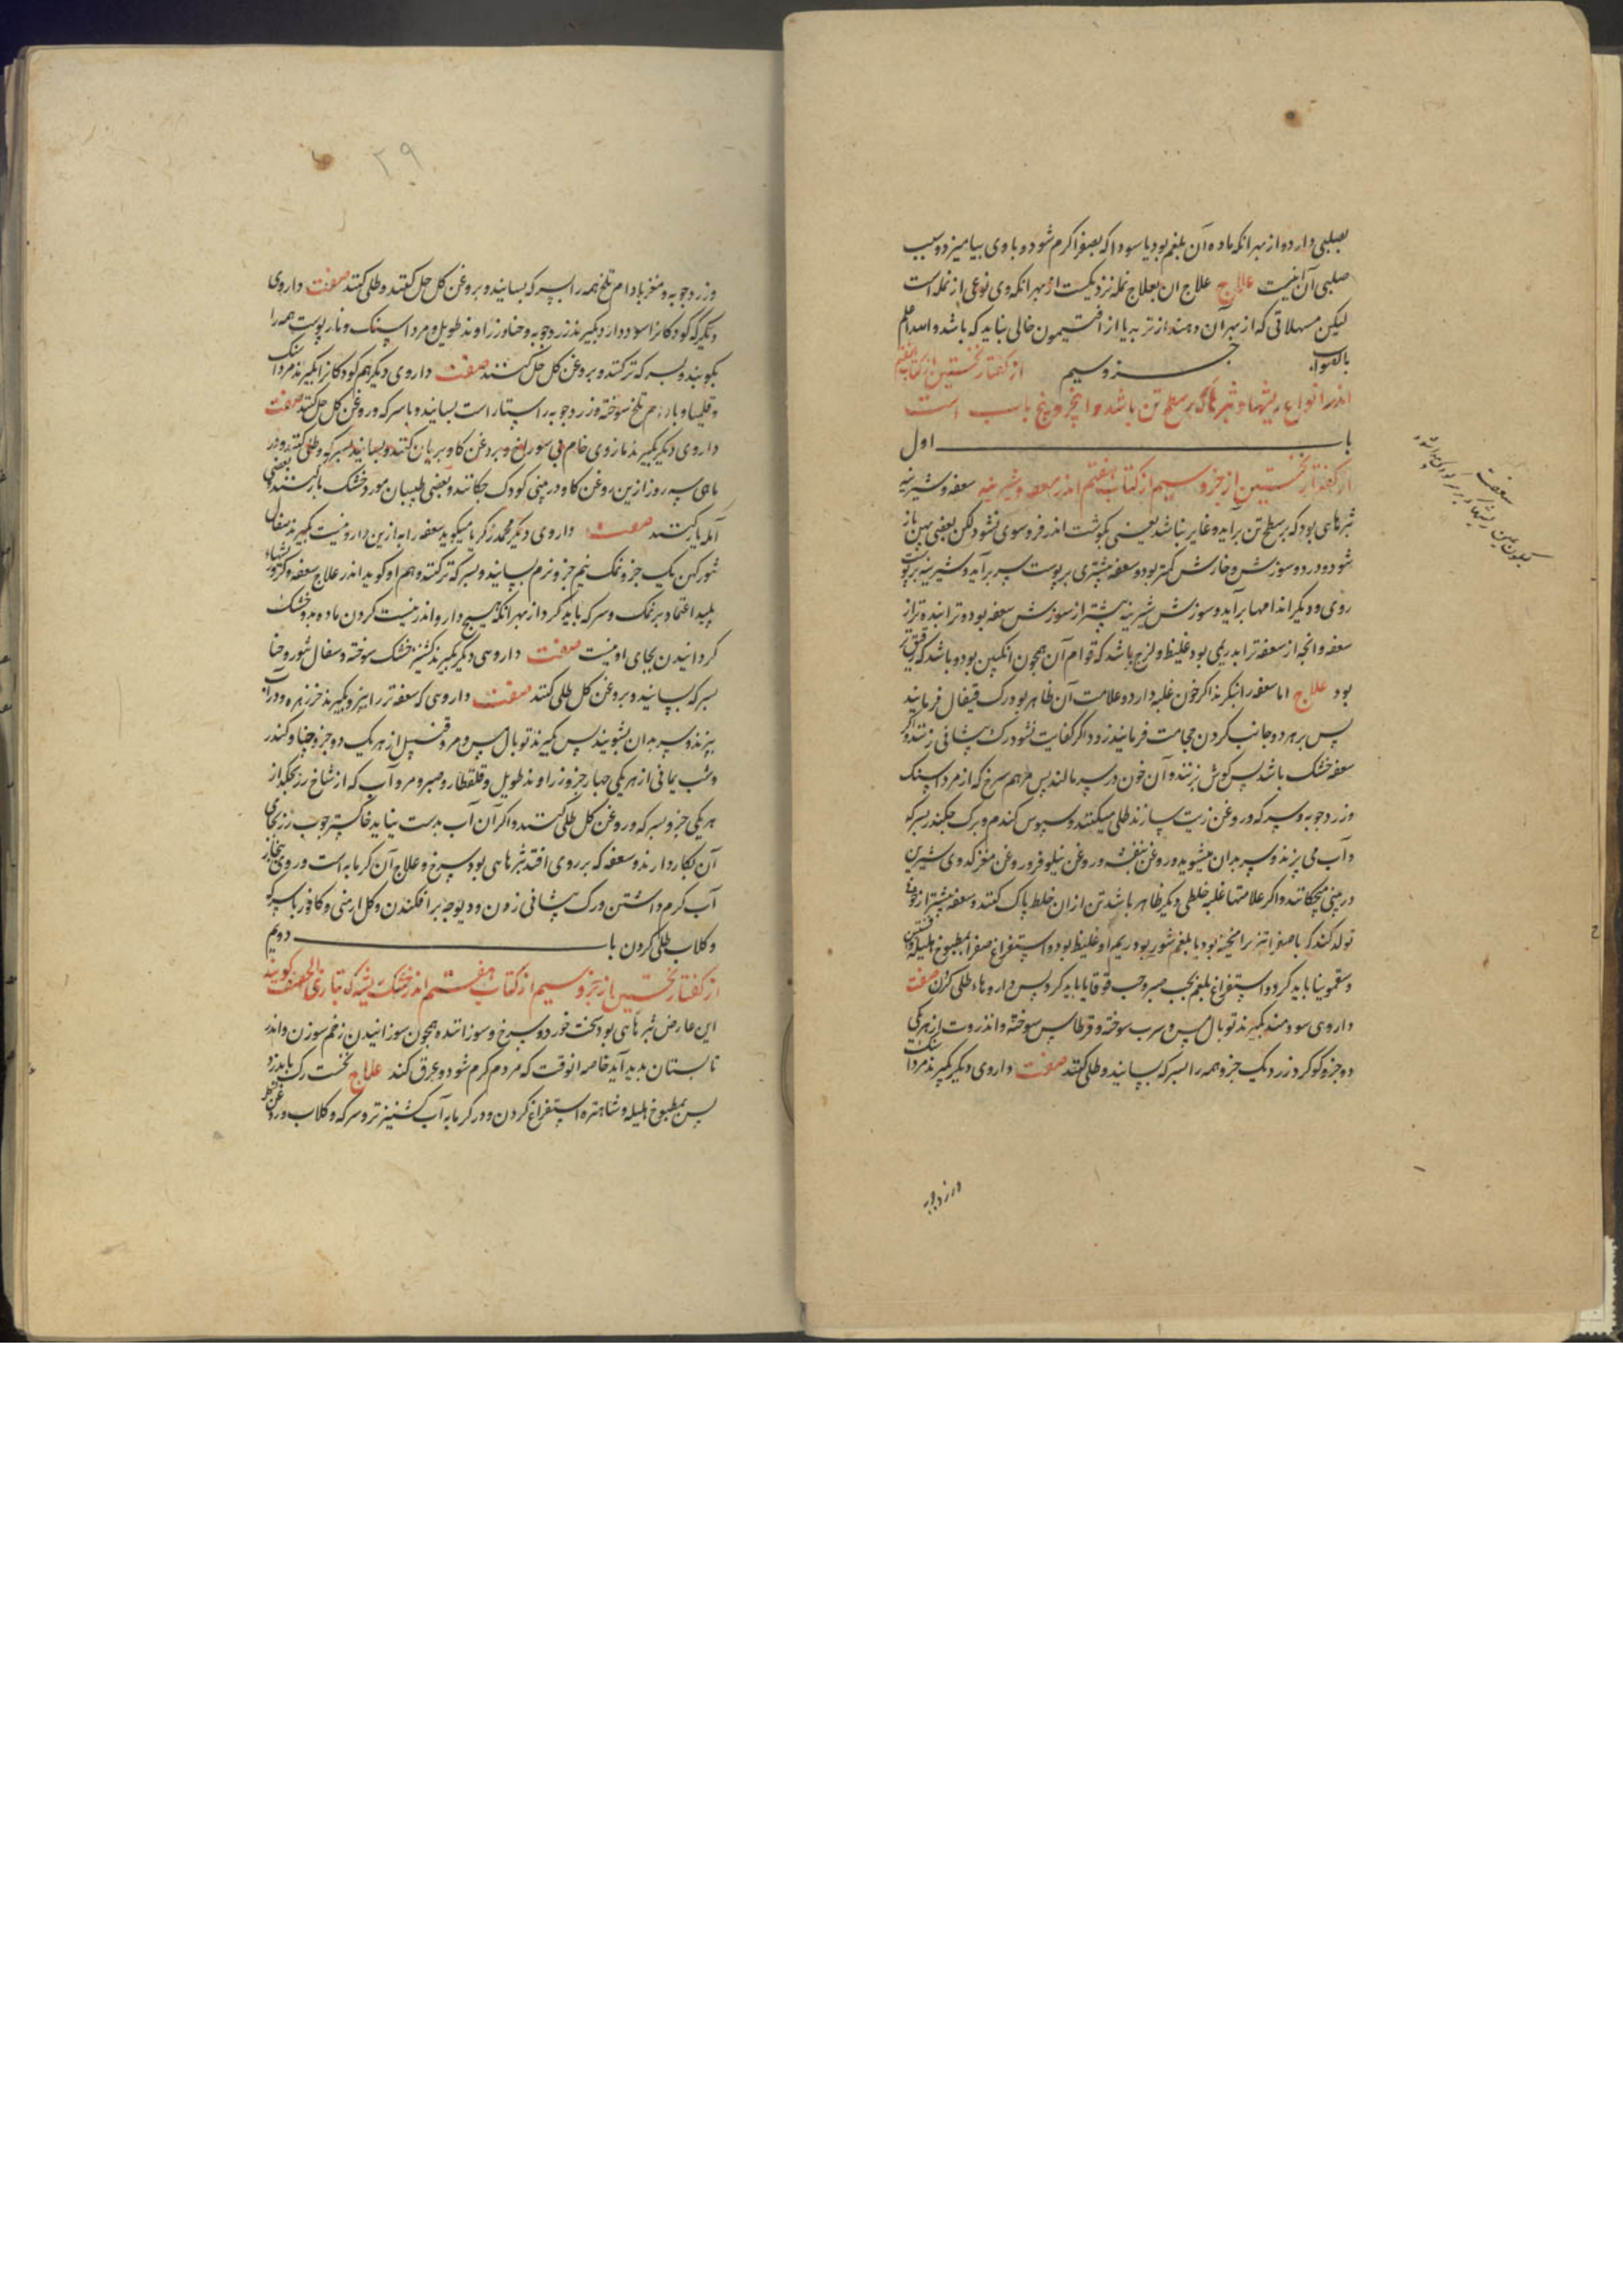 بصلبی دارد و از بهر انکه ماده آن بلغم بود یا سودا که بصفرا کرم شود و با وی بیامیزد و سبب
صلبی آن اینست علاج علاج ان بعلاج نمله نزدیکست از بهر انکه وی نوعی از نمله است
لیکن مسهلاتی که از بهر آن دهند از تربد یا از افتیمون خالی نباید که باشد والله اعلم
بالصواب جزو سیم از کفتار نخستین از کتاب هفتم
اندر انواع ریشها و بثرهای که بر سطح تن باشد و این جزو پنج باب است
باب اول
از کفتار نخستین از جزو سیم از کتاب هفتم اندر سعفه و شیرینه سعفه و شیرینه
بثرهای بود که بر سطح تن برآید و غایر نباشد یعنی بکوشت اندر فرو سوی نشود لکن بعضی پهن باز
شود و درد و سوزش و خارش کمتر بود و سعفه بیشتری بر پوست سر برآید و شیرینه بر پوست
روی و دیکر اندامها برآید و سوزش شیرینه بیشتر از سوزش سعفه بود و ترابنده تر از
سعفه و انچه از سعفه ترابد ریمی بود غلیظ و لزج باشد که قوام آن همچون انکبین بود و باشد که رقیق تر
بود علاج اما سعفه را بنکرند اکر خون غلبه دارد و علامت آن ظاهر بود رک قیفال فرمایند
پس بر هر دو جانب کردن حجامت فرمایند زد و اکر کفایت نشود رک پیشانی زنند و اکر
سعفه خشک باشد پس کوش بزنند و آن خون در سر مالند پس مرهم سرخ که از مرداسنک
و زردچوبه و سرکه و روغن زیت سازند طلی میکنند و سبوس کندم و برک چکندر بسرکه
و آب می پزند و سر بدان میشویند و روغن بنفشه و روغن نیلوفر و روغن مغز کدوی شیرین
در بینی میچکانند و اکر علامتها غلبه خلطی دیکر ظاهر باشد تن از ان خلط پاک کنند و سعفه بیشتر از خونی
تولد کند که با صفرا تیز برامیخته بود یا بلغم شور بود و ریم او غلیظ بود و استفراغ صفرا بمطبوخ هلیله و افسنتین
و سقمونیا باید کرد و استفراغ بلغم بحب صبر و حب قوقایا باید کرد پس داروهاء طلی کردن صفت
داروی سودمند بکیرند توبال مس و سرب سوخته و قرطاس سوخته و انزروت از هر یکی
دو جزو کوکرد زرد یک جزو همه را بسرکه بسایند و طلی کنند صفت داروی دیکر بکیرند مرداسنک
وزردچوبه
سعفه
وزردچوبه و مغز بادام تلخ همه را بسرکه بسایند و بروغن کل حل کنند و طلی کنند صفت داروی
دیکر که کودکانرا سود دارد بکیرند زردچوبه و حنا و زراوند طویل و مرداسنک و نارپوست همه را
بکوبند و بسرکه تر کنند و بروغن کل حل کنند صفت داروی دیکر هم کودکانرا بکیرند مرداسنک
و قلیمیا و بادام تلخ سوخته و زردچوبه راستاراست بسایند و با سرکه و روغن کل حل کنند صفت
داروی دیکر بکیرند مازوی خام بی سوراخ و بروغن کاو بریان کنند و بسایند بسرکه و طلی کنند و در
ماهی سه روز ازین روغن کاو در بینی کودک چکانند و بعضی طبیبان مورد خشک یار کنند بعضی
آمله یار کنند صفت داروی دیکر محمد زکریا میکوید سعفه را به ازین دارو نیست بکیرند سفال
تنور کهن یک جزو نمک نیم جزو نرم بسایند و بسرکه تر کنند و هم او کوید اندر علاج سعفه و کر و ریشهاء
پلید اعتماد بر نمک و سرکه باید کرد از بهر انکه هیچ دارو اندر نیست کردن ماده بد و خشک
کردانیدن بجای او نیست صفت داروی دیکر بکیرند کشنیز خشک سوخته و سفال تنور و حنا
بسرکه بسایند و بروغن کل طلی کنند صفت داروی که سعفه تر را ببرد بکیرند خرزهره و در آب
بپزند و سر بدان بشویند پس بکیرند توبال مس و مر و قنبیل از هر یک دو جزو حنا و کندر
و شب یمانی از هر یکی چهار جزو زراوند طویل و قلقطار و صبر و مر و آب که از شاخ رز بچکد از
هر یکی جزو بسرکه و روغن کل طلی کنند و اکر آن آب بدست نیاید خاکستر چوب رز بجای
آن بکار دارند و سعفه که بر روی افتد بثرهایی بود سرخ و علاج آن کرمابه است و روی ببخار
آب کرم داشتن و رک پیشانی زدن و دیوچه برافکندن و کل ارمنی و کافور با سرکه
و کلاب طلی کردن باب دویم
از کفتار نخستین از جزو سیم از کتاب هفتم اندر خشک ریشه که بتازی الحصف کویند
این عارض بثرهای بود سخت خورد و سرخ و سوزاننده همچون سوزانیدن زخم سوزن و اندر
تابستان بدید آید خاصه انوقت که مردم کرم شود و عرق کند علاج نخست رک باید زد
پس بمطبوخ هلیله و شاهتره استفراغ کردن و در کرمابه آب کشنیز تر و سرکه و کلاب و روغن کل
۲۹